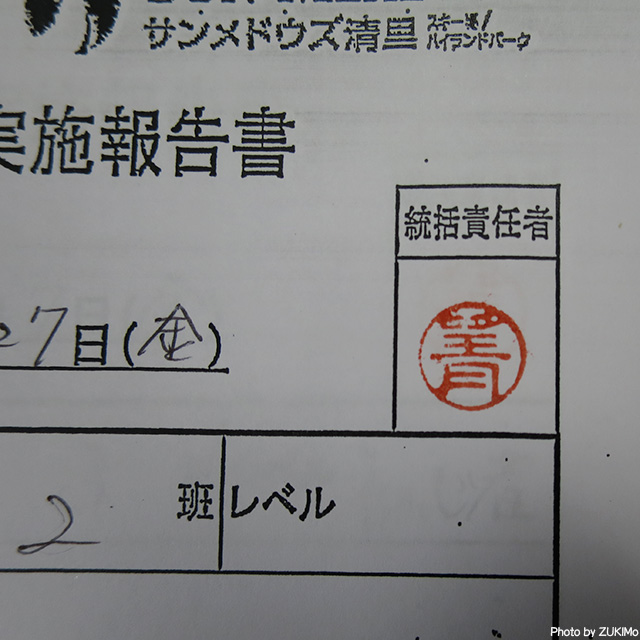 サンメドウズ清里 スキー場/
ハイランドパーク
実施報告書
統括責任者
27日(金)
2
班 レベル
Photo by ZUKIMo